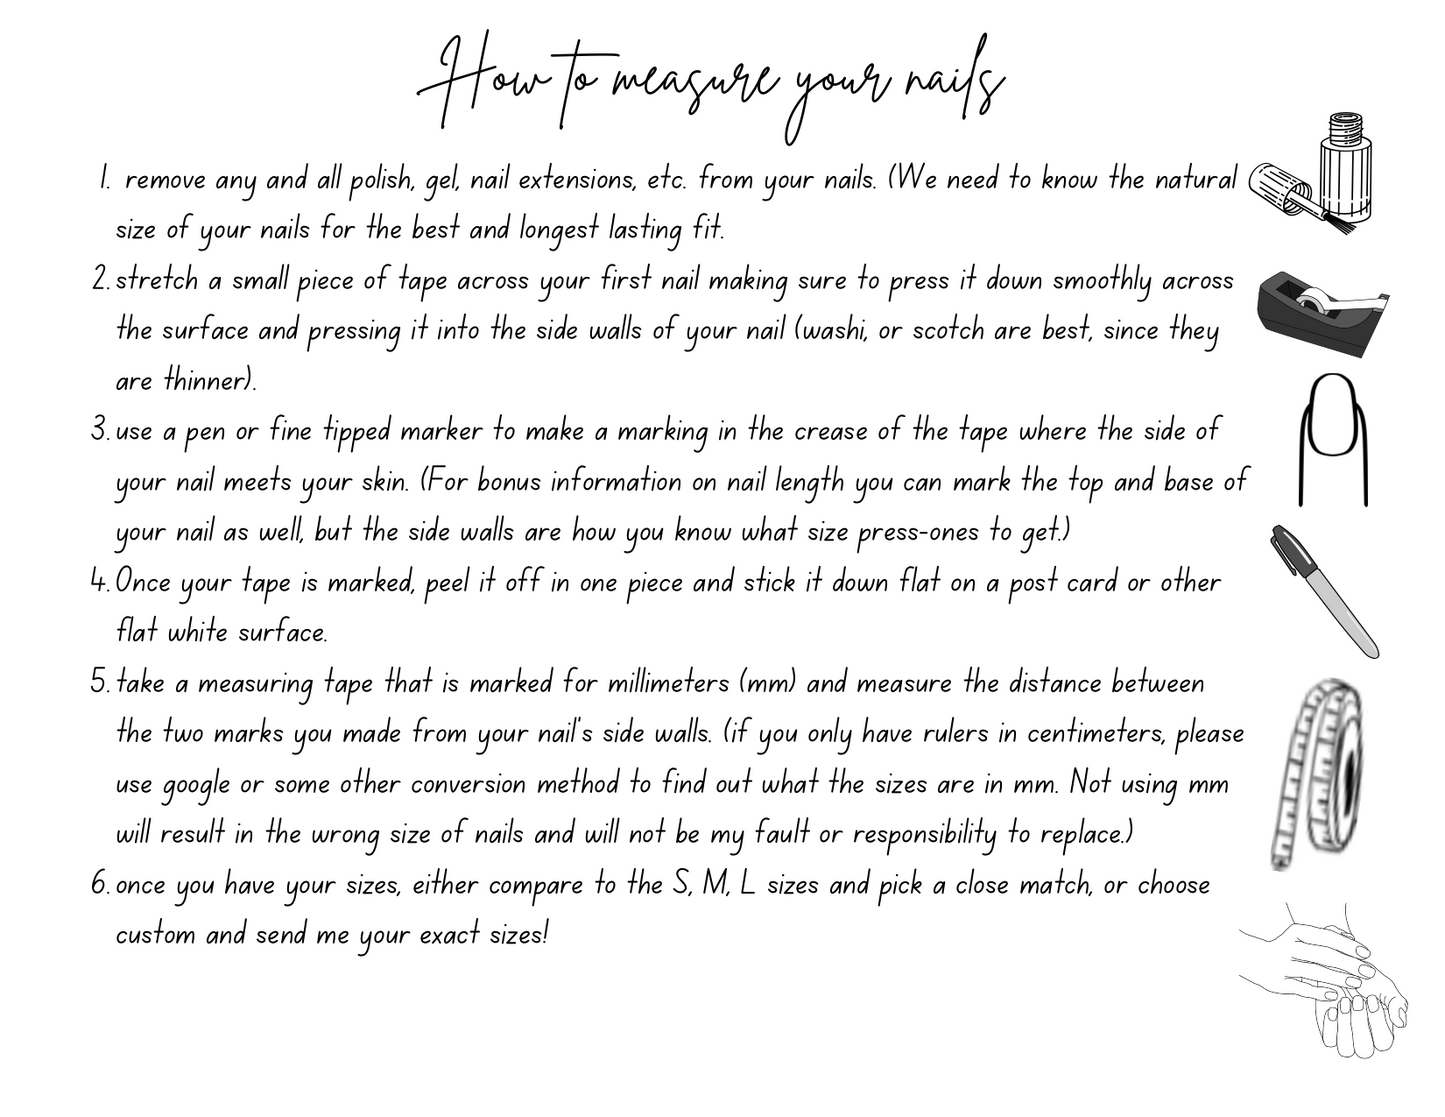 How to measure your nails
1. remove any and all polish, gel, nail extensions, etc. from your nails. (We need to know the natural
size of your nails for the best and longest lasting fit.
2. stretch a small piece of tape across your first nail making sure to press it down smoothly across
the surface and pressing it into the side walls of your nail (washi, or scotch are best, since they
are thinner).
3. use a pen or fine tipped marker to make a marking in the crease of the tape where the side of
your nail meets your skin. (For bonus information on nail length you can mark the top and base of
your nail as well, but the side walls are how you know what size press-ones to get.)
4. Once your tape is marked, peel it off in one piece and stick it down flat on a post card or other
flat white surface.
5. take a measuring tape that is marked for millimeters (mm) and measure the distance between
the two marks you made from your nail's side walls. (if you only have rulers in centimeters, please
use google or some other conversion method to find out what the sizes are in mm. Not using mm
will result in the wrong size of nails and will not be my fault or responsibility to replace.)
6. once you have your sizes, either compare to the S, M, L sizes and pick a close match, or choose
custom and send me your exact sizes!